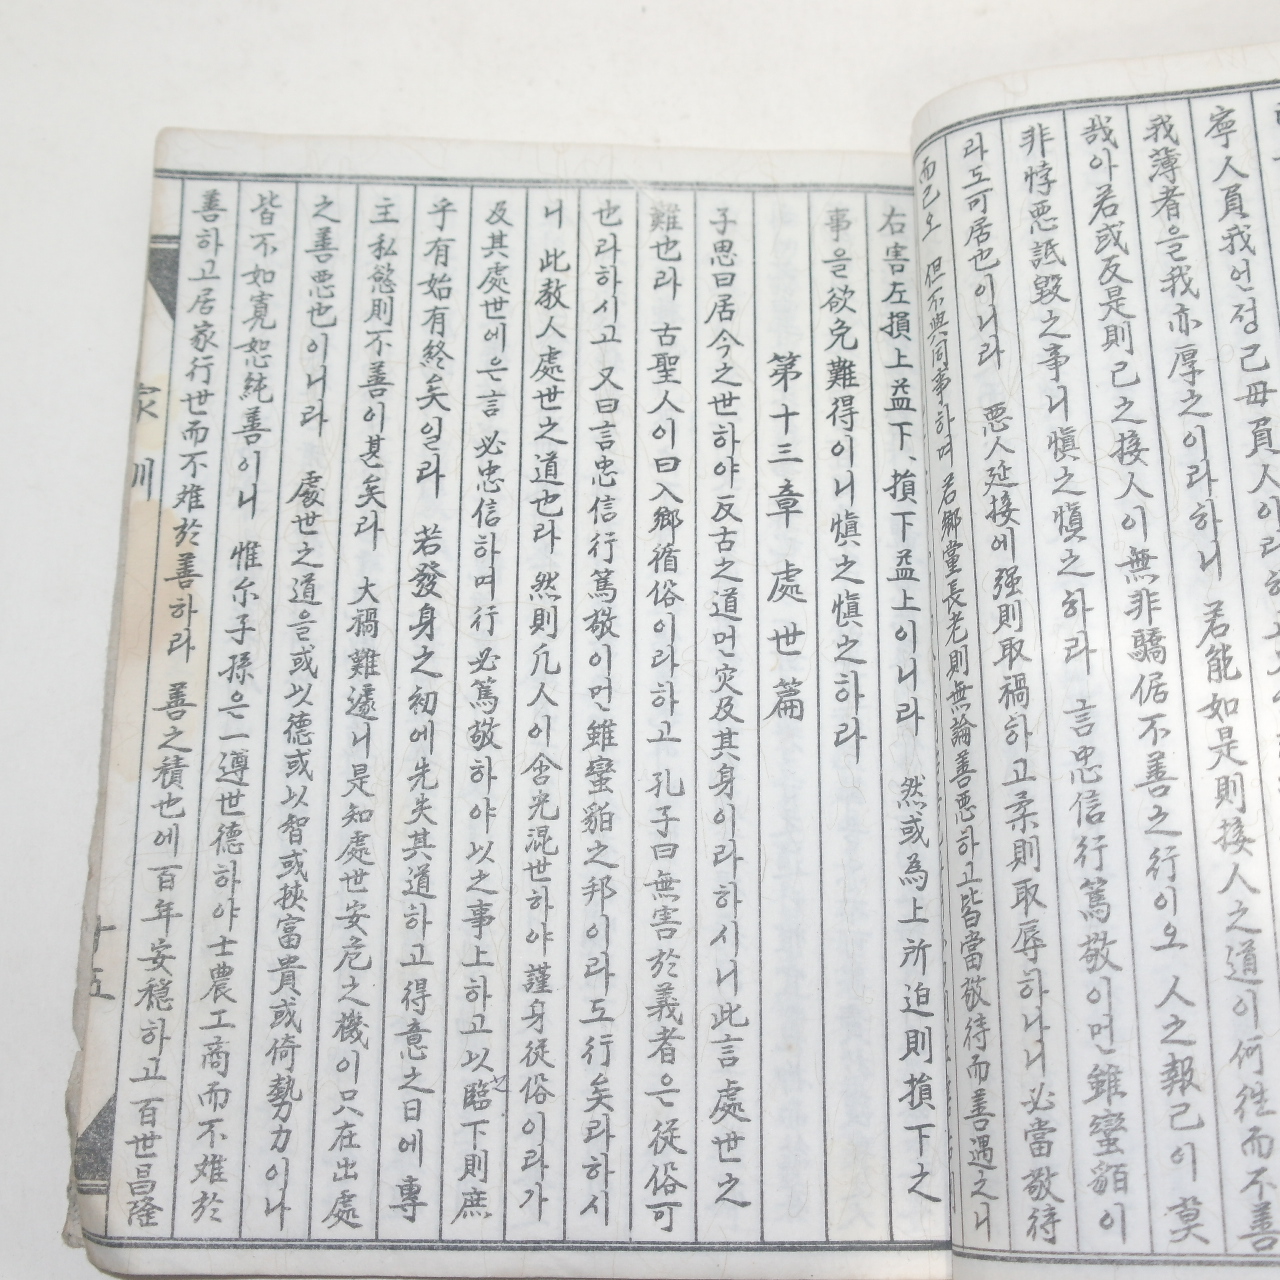 寧人負我언정己毋負人이라하
我薄者을我亦厚之이라하니 若能如是則接人之道이何往而不善
哉아若或反是則己之接人이無非驕倨不善之行이오 人之報己이莫
非悖惡詆毀之事니愼之愼之하라 言忠信行篤敬이면雖蠻貊이
라도可居也이니라 惡人延接에强則取禍하고柔則取辱하나니必當敬待
而已오 但不與同事하며 若鄕黨長老則無論善惡하고皆當敬待而善遇之니
右害左損上益下、損下益上이니라 然或為上所迫則損下之
事을欲免難得이니愼之愼之하라
第十三章 處世篇
子思曰居今之世하야反古之道면灾及其身이라하시니此言處世之
難也라 古聖人이曰入鄕循俗이라하고 孔子曰無害於義者은從俗可
也라하시고 又曰言忠信行篤敬이면雖蠻貊之邦이라도行矣라하시
니 此敎人處世之道也라 然則凡人이含光混世하야謹身從俗이라가
及其處世에은言必忠信하며行必篤敬하야以之事上하고以之臨下則庶
乎有始有終矣일라 若發身之初에先失其道하고得意之日에專
主私慾則不善이甚矣라 大禍難逃니是知處世安危之機이只在出處
之善惡也이니라 處世之道을或以德或以智或挾富貴或倚勢力이나
皆不如寬恕純善이니 惟尒子孫은一遵世德하야士農工商而不难於
善하고居家行世而不难於善하라 善之積也에百年安穩하고百世昌隆
家訓
十五